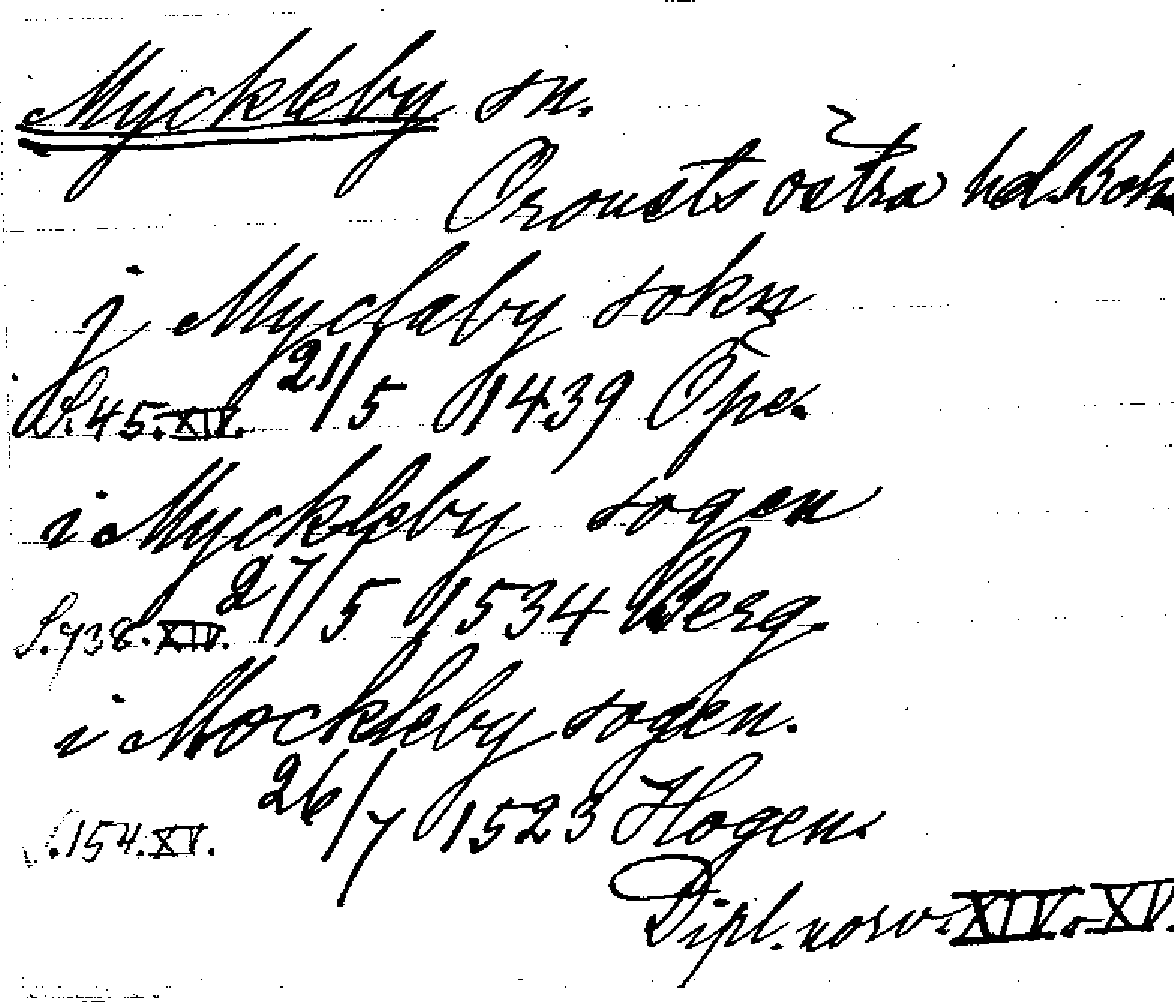 Myckleby sn.
Orousts östra hd. Boh.
j Myclaby sokn
S. 45. XIV. 21/5 1439 Ope.
i Myckleby sogen
S. 738. XIV. 27/5 1534 Berg.
i Mockleby sogen.
S. 154. XV. 26/7 1523 Hogen.
Dipl. norv. XIV. XV.